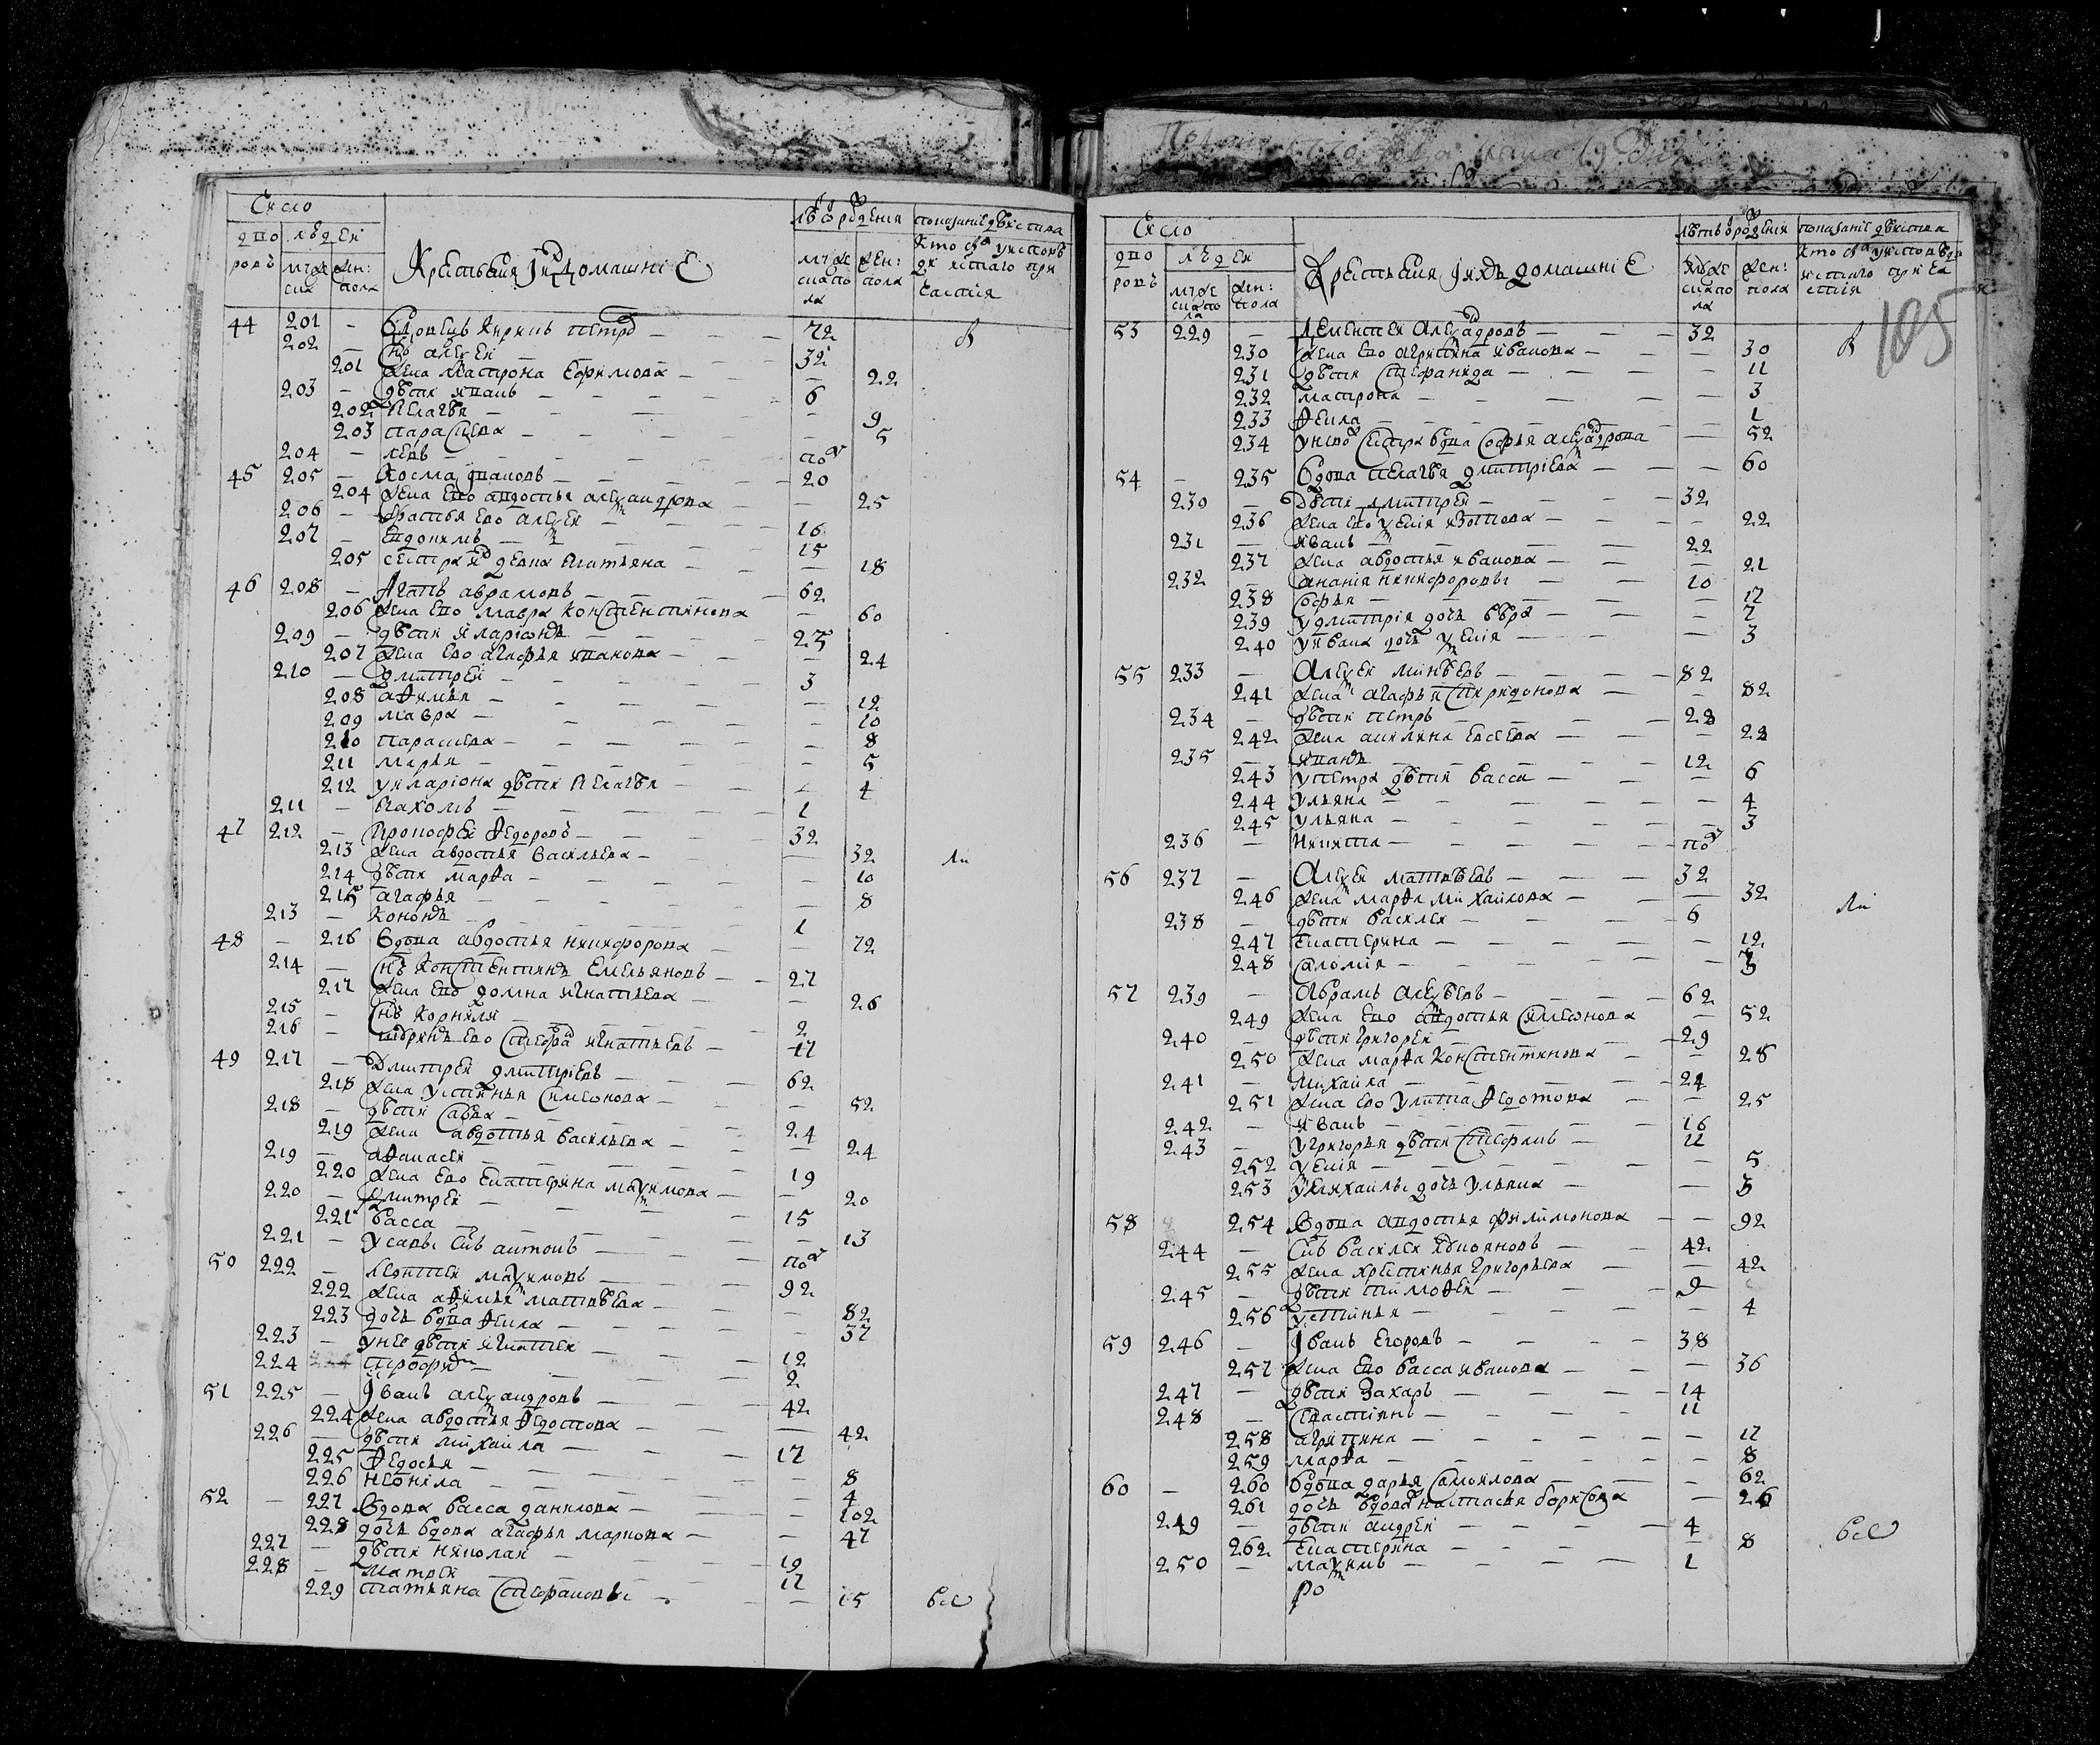 Число
дворовъ
людей
мужеска
жен: пола
Крестьяня ихъ домашние
лѣтъ от рождения
мужеска пола
жен: пола
показание действа кто был у исповеди и святаго причастия
44 201 - вдовецъ Кирилъ Петров - 72
202 - снъ Алеѯей - 32
201 жена Матрона Ефимова - 22
203 - дѣти Иванъ - 6
202 Пелагѣя - 9
203 Парасцева - 5
204 - Левъ - пол
45 205 - Косма Ивановъ - 20
204 жена ево Авдотья Алеѯандрова - 25
206 - братья ево Алеѯей - 16
207 - Евдокимъ - 15
205 сестра их девка Татьяна - 18
46 208 - Агапъ Аврамовъ - 62
206 жена ево Мавра Констентинова - 60
209 - дѣти Иларионъ - 25
207 жена ево Агафья Иванова - 24
210 - Дмитрей - 3
208 Афимья - 12
209 Мавра - 10
210 Парасцева - 8
211 Марья - 5
212 у Илариона дѣти Пелагѣя - 4
211 - Пахомъ - 1
47 212 - Прокофей Ѳедоровъ - 32
213 жена Авдотья Васильева - 32
214 дѣти Марѳа - 10
215 Агафья - 8
213 - Кононъ - 1
48 - 216 Вдова Авдотья Никифорова - 72
214 - снъ Констентинъ Емельяновъ - 27
217 жена ево Домна Игнатьева - 26
215 - снъ Корнила - 2
216 - шуринъ ево Стефан Игнатьевъ - 17
49 217 - Дмитрей Дмитриевъ - 62
218 жена Устинья Симеонова - 52
218 - дѣти Сава - 24
219 жена Авдотья Васильева - 24
219 - Аѳанасей - 19
220 жена ево Екатерина Маѯимова - 20
220 - Дмитрей - 15
221 Васса - 13
221 - у Савы снъ Антонъ - пол
50 222 - Леонтей Маѯимовъ - 92
222 жена Аѳимья Матвѣева - 82
223 дочь вдова Ѳекла - 37
223 - у нее дѣти Игнатей - 12
224 Трофим - 2
51 225 - Иванъ Алеѯандровъ - 42
224 жена Авдотья Ѳедотова - 42
226 - дѣти Михаила - 17
225 Ѳедосья - 8
226 Неонила - 4
52 - 227 Вдова Васса Данилова - 102
228 дочь вдова Агафья Маркова - 47
227 - дѣти Николай - 19
228 - Матѳей - 17
229 Татьяна Стефановы - 15 всѣ
105
Число
дворовъ
людей
мужеска пола
жен: пола
Крестьяня ихъ домашние
лѣтъ от рождения
мужеска пола
жен: пола
53 229 - Лементей Алеѯандровъ - 32
230 жена ево Агрипина Иванова - 30
231 дѣти Стефанида - 11
232 Матрона - 3
233 Ѳекла - 1
234 у нево сестра вдва Софья Алеѯандрова - 52
54 - 235 вдова Пелагѣя Дмитриева - 60
230 - Дѣти Дмитрей - 32
236 жена ево Ѯения Изотова - 22
231 - Иванъ - 22
237 жена Авдотья Иванова - 21
232 - Анания Никифоровы - 10
238 Софья - 17
239 у Дмитрия дочь Вѣра - 7
240 у Ивана дочь Ѯения - 3
55 233 - Алеѯей Минѣевъ - 82
241 жена Агафья Спиридонова - 82
234 - дѣти Петръ - 28
242 жена Акилина Евсева - 22
235 - Иванъ - 12
243 у Петра дѣти Васса - 6
244 Ульяна - 4
245 Ульяна - 3
236 - Никита - пол
56 237 - Алеѯей Матвѣевъ - 32
246 жена Марѳа Михайлова - 32
238 - дѣти Василей - 6
247 Екатерина - 12
248 Соломия - 3
57 239 - Абрамъ Алеѯѣевъ - 62
249 жена ево Авдотья Симеонова - 52
240 - дѣти Григорей - 29
250 жена Марѳа Констентинова - 28
241 - Михайла - 24
251 жена ево Улита Ѳедотова - 25
242 - Иванъ - 16
243 - у Григорья дѣти Стефанъ - 11
252 Ѯения - 5
253 у Михайлы дочь Ульяна - 3
58 254 Вдова Авдотья Филимонова - 92
244 - Снъ Василей - 42
255 жена Христинья Григорьева - 42
245 - дѣти Тимоѳей - 9
256 Устинья - 4
59 246 - Иванъ Егоровъ - 38
257 жена ево Васса Иванова - 36
247 - дѣти Захаръ - 14
248 - Евастиянъ - 11
258 Агрипина - 17
259 Марѳа - 8
60 - 260 вдова Дарья Самоилова - 62
261 дочь вдова Настасья Борисова - 26
249 - дѣти Андрей - 4
262 Екатерина - 8 всѣ
250 - Маѯимъ - 1